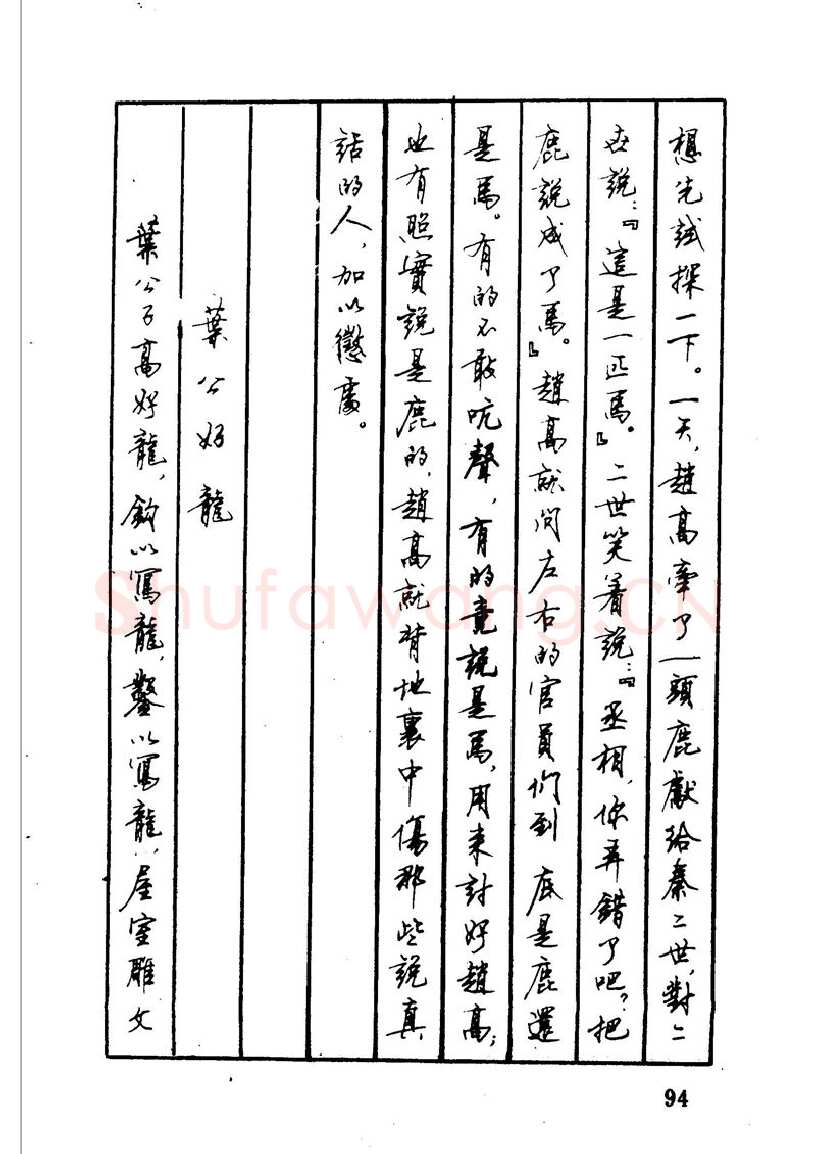 想先試探一下。一天，趙高牽了一頭鹿獻給秦二世，對二
世說：『這是一匹馬。』二世笑着說：『丞相，你弄錯了吧？把
鹿說成了馬。』趙高就问左右的官員们到底是鹿還
是馬。有的不敢吭聲，有的竟說是馬，用来討好趙高；
也有照實說是鹿的，趙高就背地裏中傷那些說真
話的人，加以懲處。
葉公好龍
葉公子高好龍，鈎以寫龍，鑿以寫龍，屋室雕文
Shufawang.CN
94